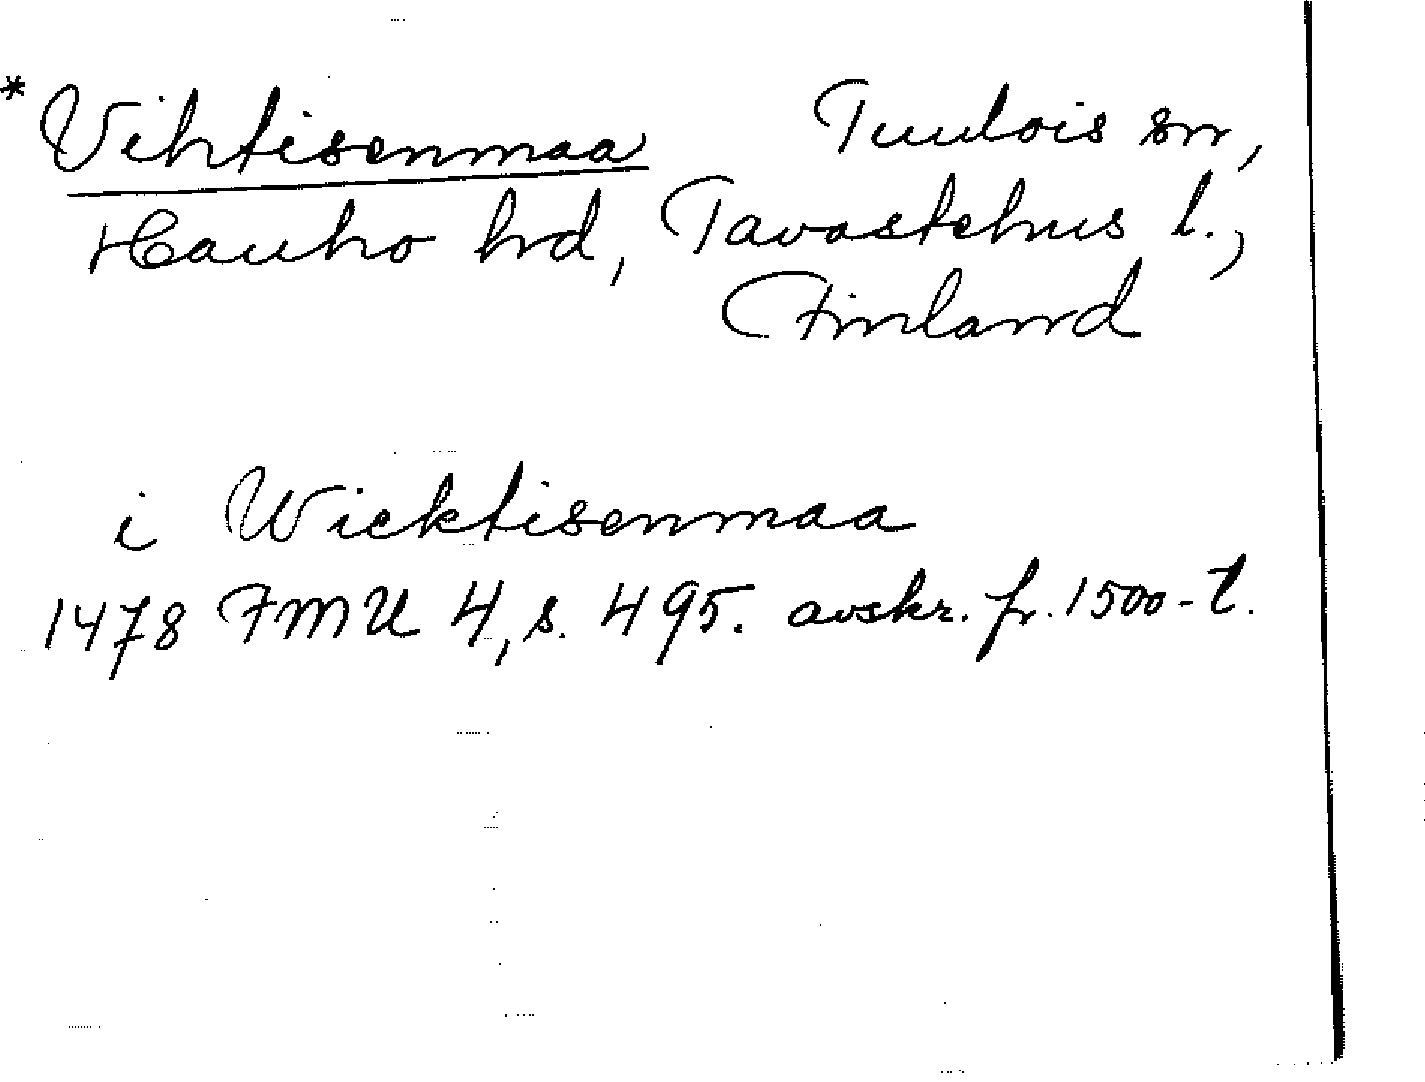 * Vihtisenmaa Tuulois sn,
Hauho hrd, Tavastehus l.,
Finland
i Wicktisenmaa
1478 FMU 4, s. 495. avskr. fr. 1500-t.